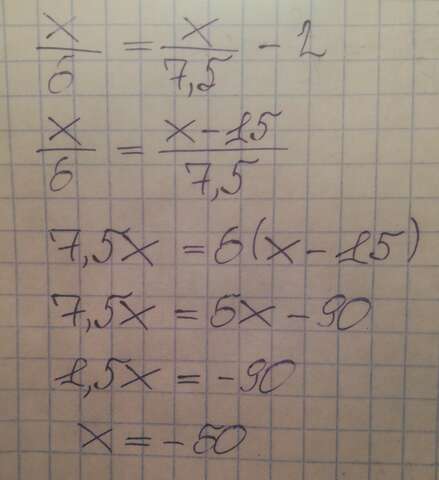 x/6 = x/7,5 - 2
x/6 = (x-15)/7,5
7,5x = 6(x-15)
7,5x = 6x - 90
1,5x = -90
x = -60